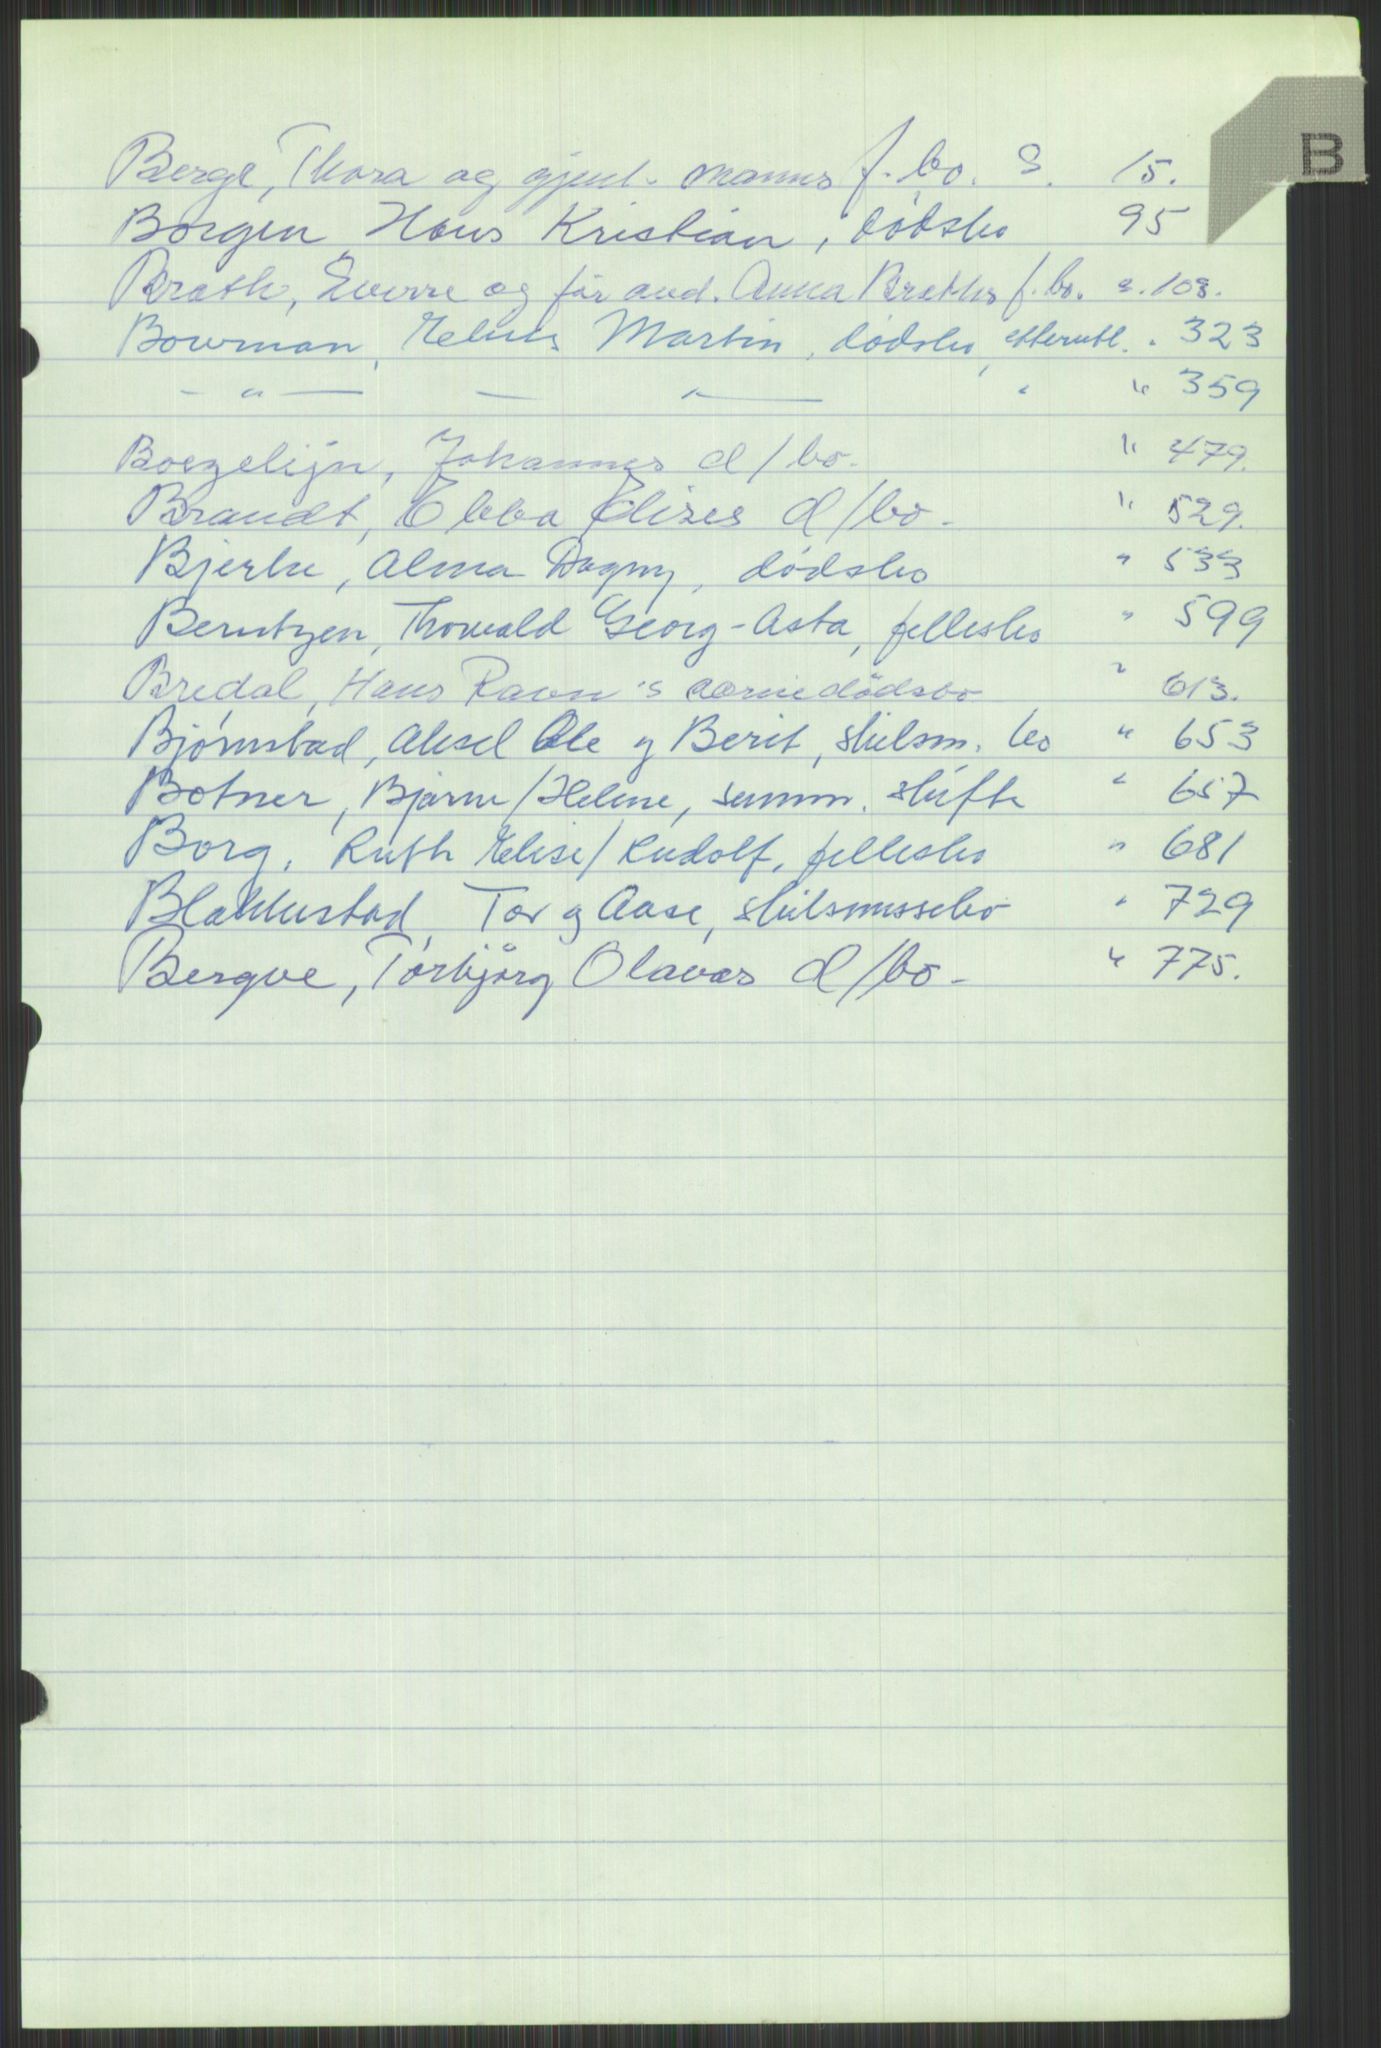 B
Berge, Thora og gjenl. manns f. bo. S. 15.
Borgen, Hans Kristian, dødsbo 95
Brath, Sverre og før avd. Anna Braths f. bo. s. 103.
Bowman, Martin, dødsbo, etterutl. " 323
— " — — " — " " 359
Boezelijn, Johannes d/bo. " 479.
Brandt, Ebba Elises d/bo - " 529.
Bjerke, Alma Dagny, dødsbo " 533
Berntzen, Thorvald Georg - Asta, fellesbo " 599
Bredal, Hans Ravn's dødsbo " 613.
Bjørnstad, Aksel Ole og Berit, skilsm. bo " 653
Botner, Bjarne/Helene, summ. skifte " 657
Borg, Ruth Elise/Rudolf, fellesbo " 681
Blakkestad, Tor og Aase, skilsmissebo " 729
Bergve, Torbjørg Olavas d/bo - " 775.